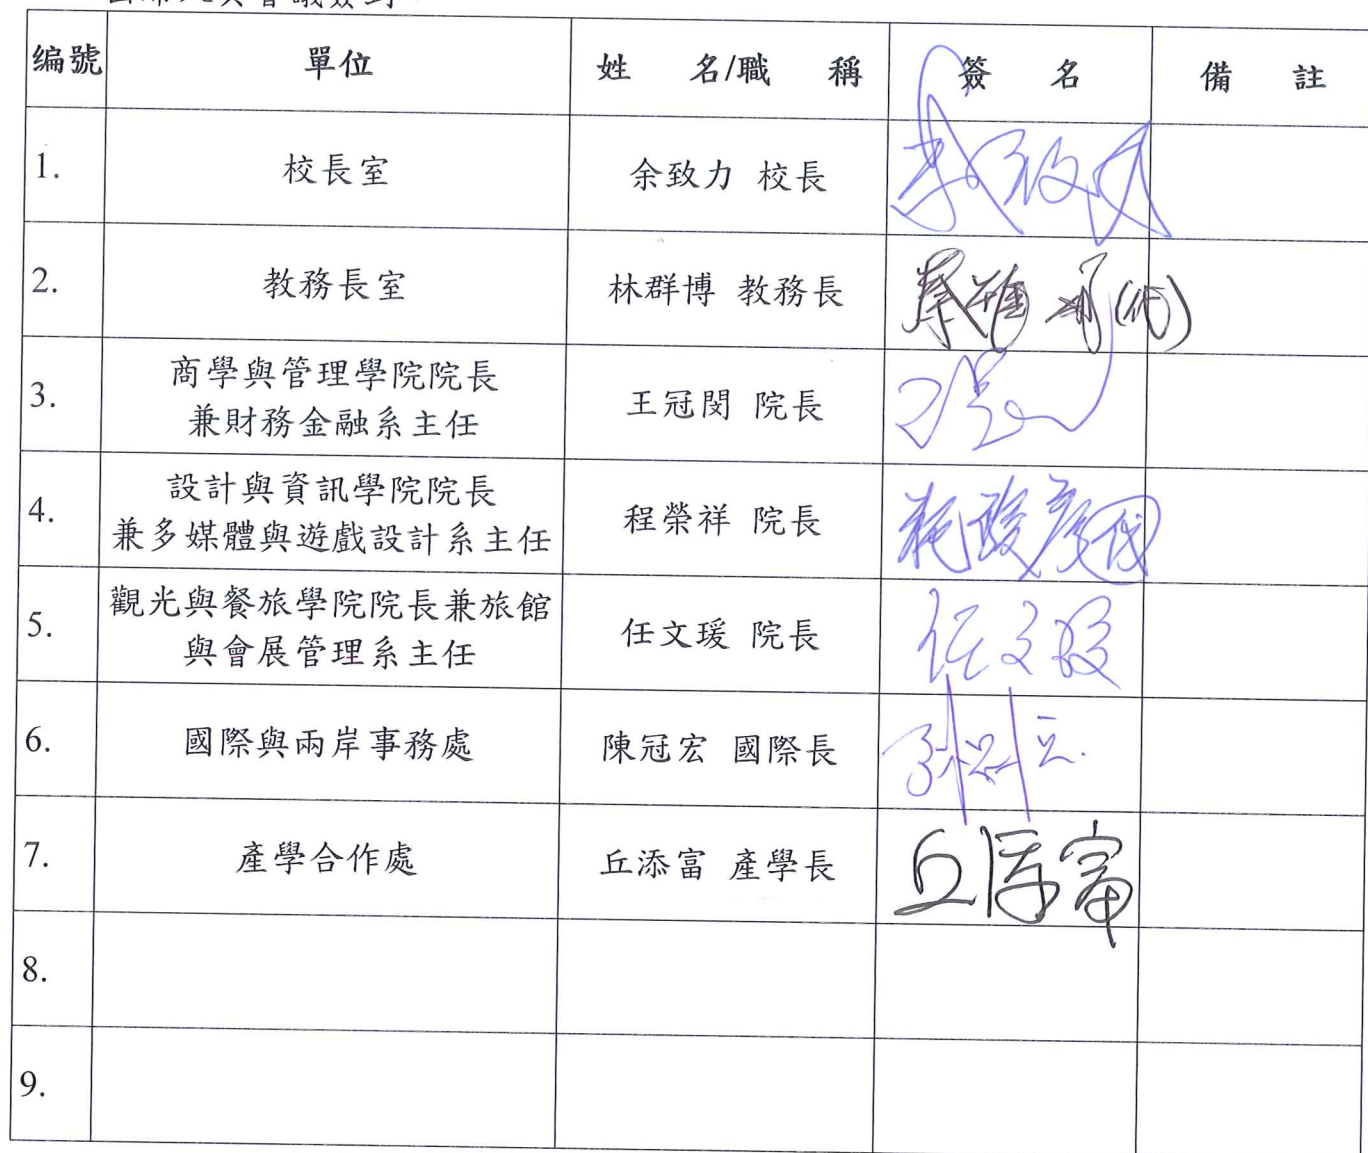 编號 單位 姓 名/職 稱 簽 名 備 註
1. 校長室 余致力 校長
2. 教務長室 林群博 教務長 (代)
3. 商學與管理學院院長
兼財務金融系主任 王冠閔 院長
4. 設計與資訊學院院長
兼多媒體與遊戲設計系主任 程榮祥 院長 代
5. 觀光與餐旅學院院長兼旅館
與會展管理系主任 任文瑗 院長 任文瑗
6. 國際與兩岸事務處 陳冠宏 國際長
7. 產學合作處 丘添富 產學長 丘添富
8.
9.